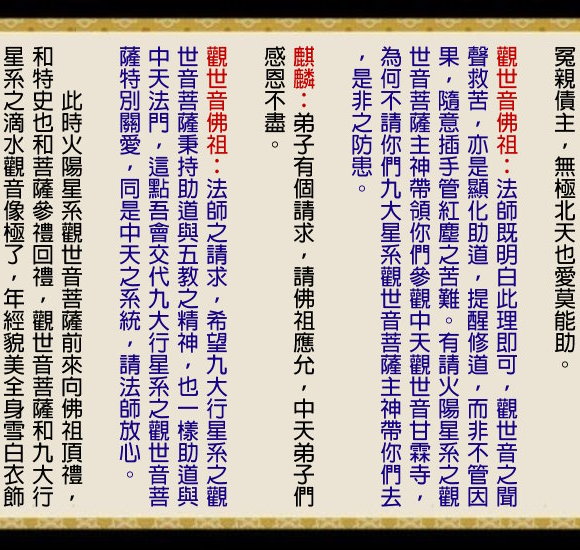 冤親債主，無極北天也愛莫能助。
觀世音佛祖：法師既明白此理即可，觀世音之聞
聲救苦，亦是顯化助道，提醒修道，而非不管因
果，隨意插手管紅塵之苦難。有請火陽星系之觀
世音菩薩主神帶領你們參觀中天觀世音甘霖寺，
為何不請你們九大星系觀世音菩薩主神帶你們去
，是非之防患。
麒麟：弟子有個請求，請佛祖應允，中天弟子們
感恩不盡。
觀世音佛祖：法師之請求，希望九大行星系之觀
世音菩薩秉持助道與五教之精神，也一樣助道與
中天法門，這點吾會交代九大行星系之觀世音菩
薩特別關愛，同是中天之系統，請法師放心。
此時火陽星系觀世音菩薩前來向佛祖頂禮，
和特史也和菩薩參禮回禮，觀世音菩薩和九大行
星系之滴水觀音像極了，年經貌美全身雪白衣飾